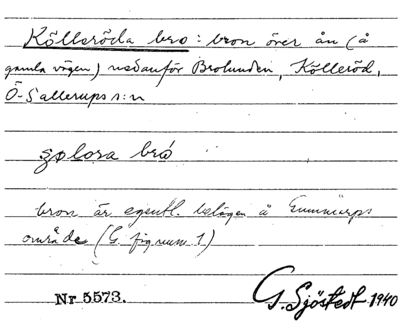 Kölleröda bro: bron över ån (å
gamla vägen) nedanför Brolunden, Kölleröd,
Ö-Sallerups s:n
bron är egentl. belägen å Gummarps
område (G. fig num 1)
Nr 5573.
G. Sjöstedt 1940